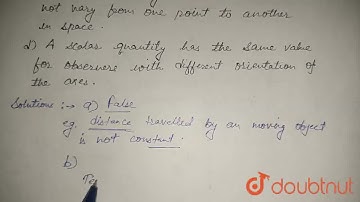 not vary from one point to another
in space.
d) A scalar quantity has the same value
for observers with different orientation of
the axes.
Solution :→ a) False
eg. distance travelled by an moving object
is not constant.
b)
doubtnut